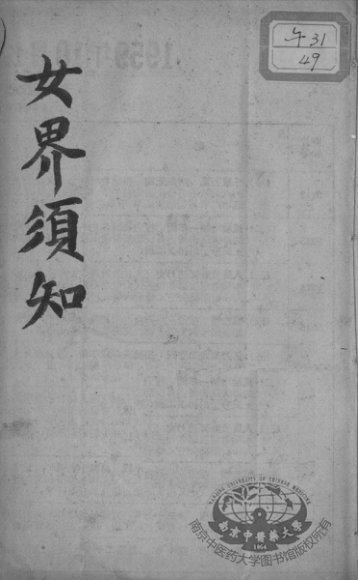 女界須知
午31
49
NANJING UNIVERSITY OF CHINESE MEDICINE
南京中醫藥大學
1954
南京中医药大学图书馆版权所有